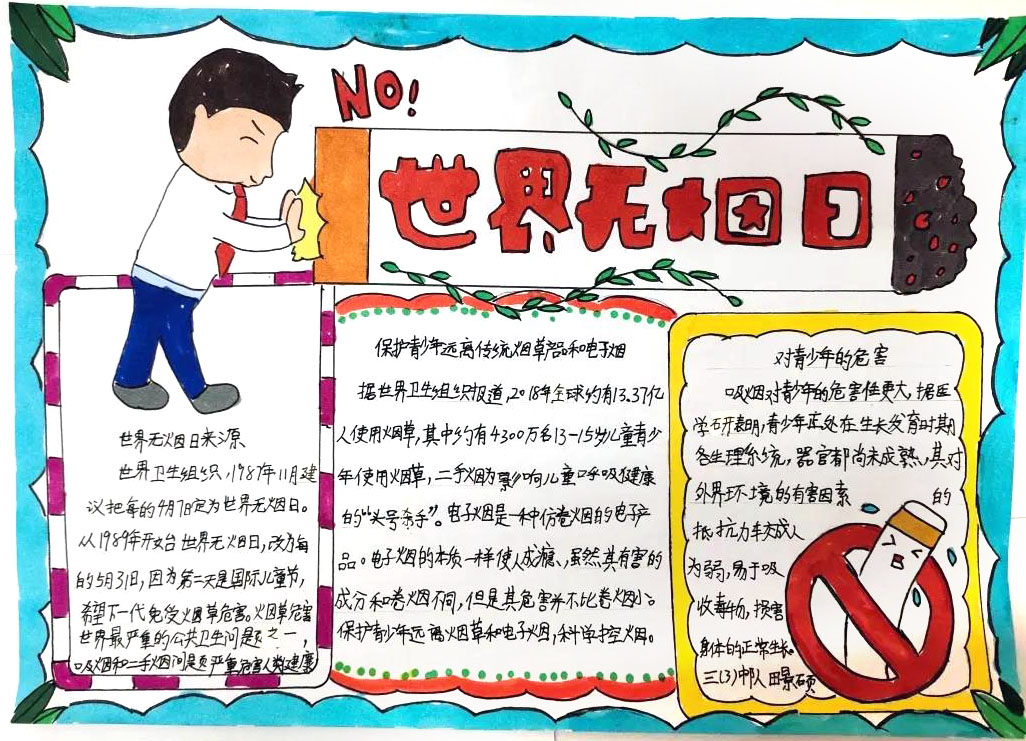 NO!
世界无烟日
世界无烟日来源
世界卫生组织,1987年11月建
议把每年的4月7日定为世界无烟日。
从1989年开始世界无烟日,改为每
的5月31日,因为第二天是国际儿童节,
希望下一代免受烟草危害。烟草危害
世界最严重的公共卫生问题之一,
吸烟和二手烟问题严重危害人类健康
保护青少年远离传统烟草产品和电子烟
据世界卫生组织报道,2018年全球约有13.37亿
人使用烟草,其中约有4300万名13-15岁儿童青少
年使用烟草,二手烟为影响儿童呼吸健康
的“头号杀手”。电子烟是一种仿卷烟的电子产
品。电子烟的本质一样使人成瘾,虽然其有害的
成分和卷烟不同,但是其危害并不比卷烟小。
保护青少年远离烟草和电子烟,科学控烟。
对青少年的危害
吸烟对青少年的危害性更大,据医
学研表明,青少年正处在生长发育时期
各生理系统,器官都尚未成熟,其对
外界环境的有害因素的
抵抗力较成人
为弱,易于吸
收毒物,损害
身体的正常生长。
三(3)中队 田景硕